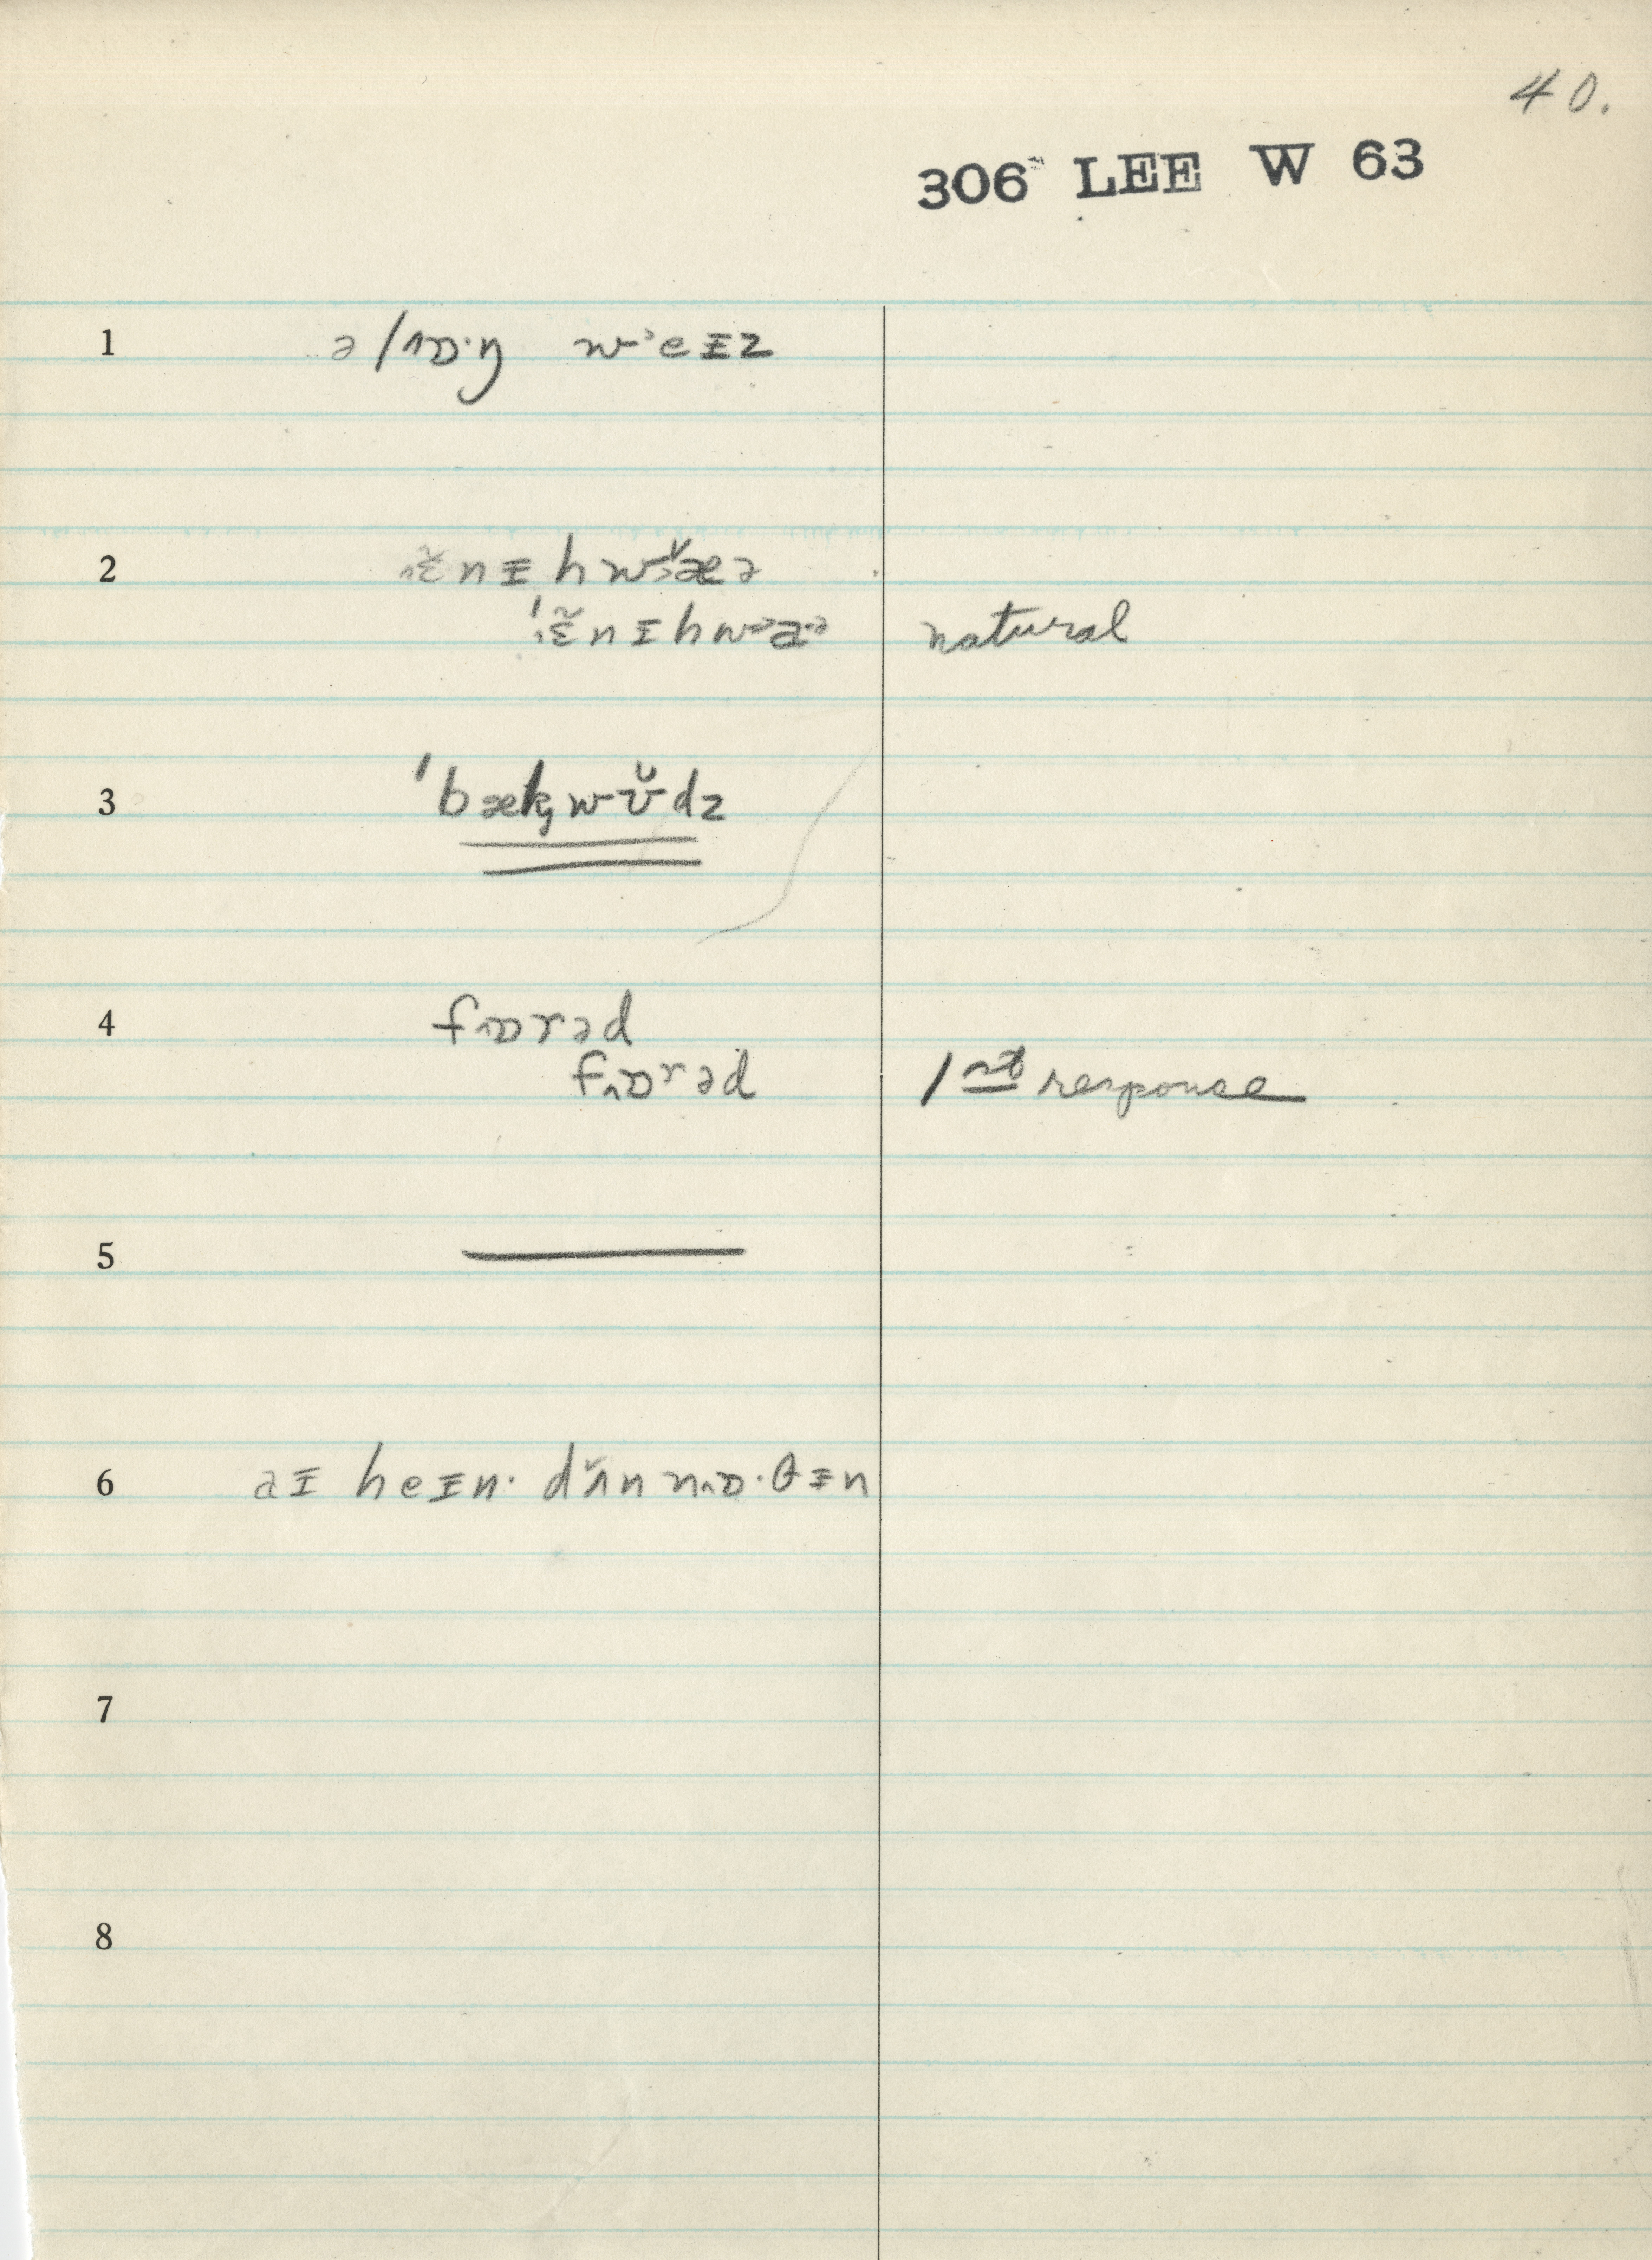 40.
306 LEE W 63
1 ə lɒ·ŋ wˈeɪz
2 ɛ̆nɪhwæə
ˈɛ̆nɪhwæə natural
3 ˈbækwʊ̆dz
4 fɒrəd
fɒʳəd 1st response
5 —
6 aɪ heɪn· dʌ̆n nɒ·θɪn
7
8